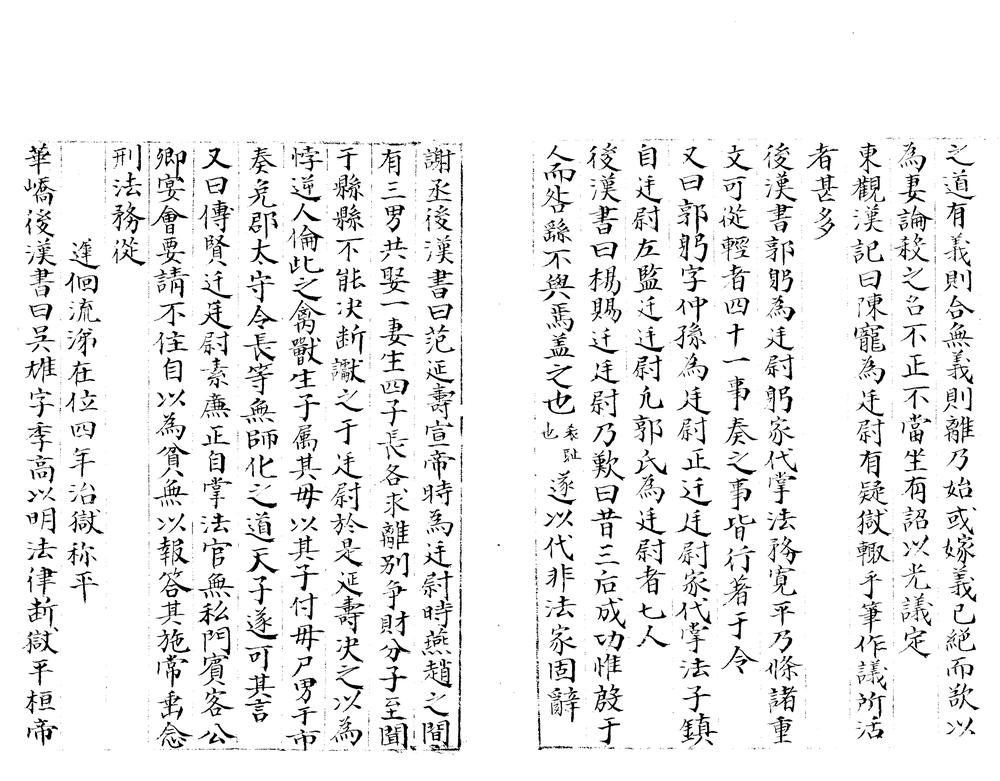 之道有義則合無義則離乃始或嫁義已絕而欲以
為妻論移之名不正不當坐有詔以光議定
東觀漢記曰陳寵為廷尉有疑獄輙手筆作議所活
者甚多
後漢書郭躬為廷尉躬家代掌法務寛平乃條諸重
文可從輕者四十一事奏之事皆行著于令
又曰郭躬字仲孫為廷尉正迁廷尉家代掌法子鎮
自廷尉左監迁廷尉凢郭氏為廷尉者七人
後漢書曰楊賜迁廷尉乃歎曰昔三后成功惟殷于
人而咎繇不與焉盖之也
也 耻
遂以代非法家固辭
謝丞後漢書曰范延壽宣帝時為廷尉時燕趙之間
有三男共娶一妻生四子長各求離別争財分子至聞
于縣縣不能决断讞之于廷尉於是延壽决之以為
悖逆人倫此之禽獸生子属其母以其子付母尸男于市
奏免郡太守令長等無師化之道天子遂可其言
又曰傳賢迁廷尉素廉正自掌法官無私門賓客公
卿宴會要請不徃自以為貧無以報答其施常垂念
刑法務從
遅佪流涕在位四年治獄称平
華嶠後漢書曰吳雄字季高以明法律断獄平桓帝